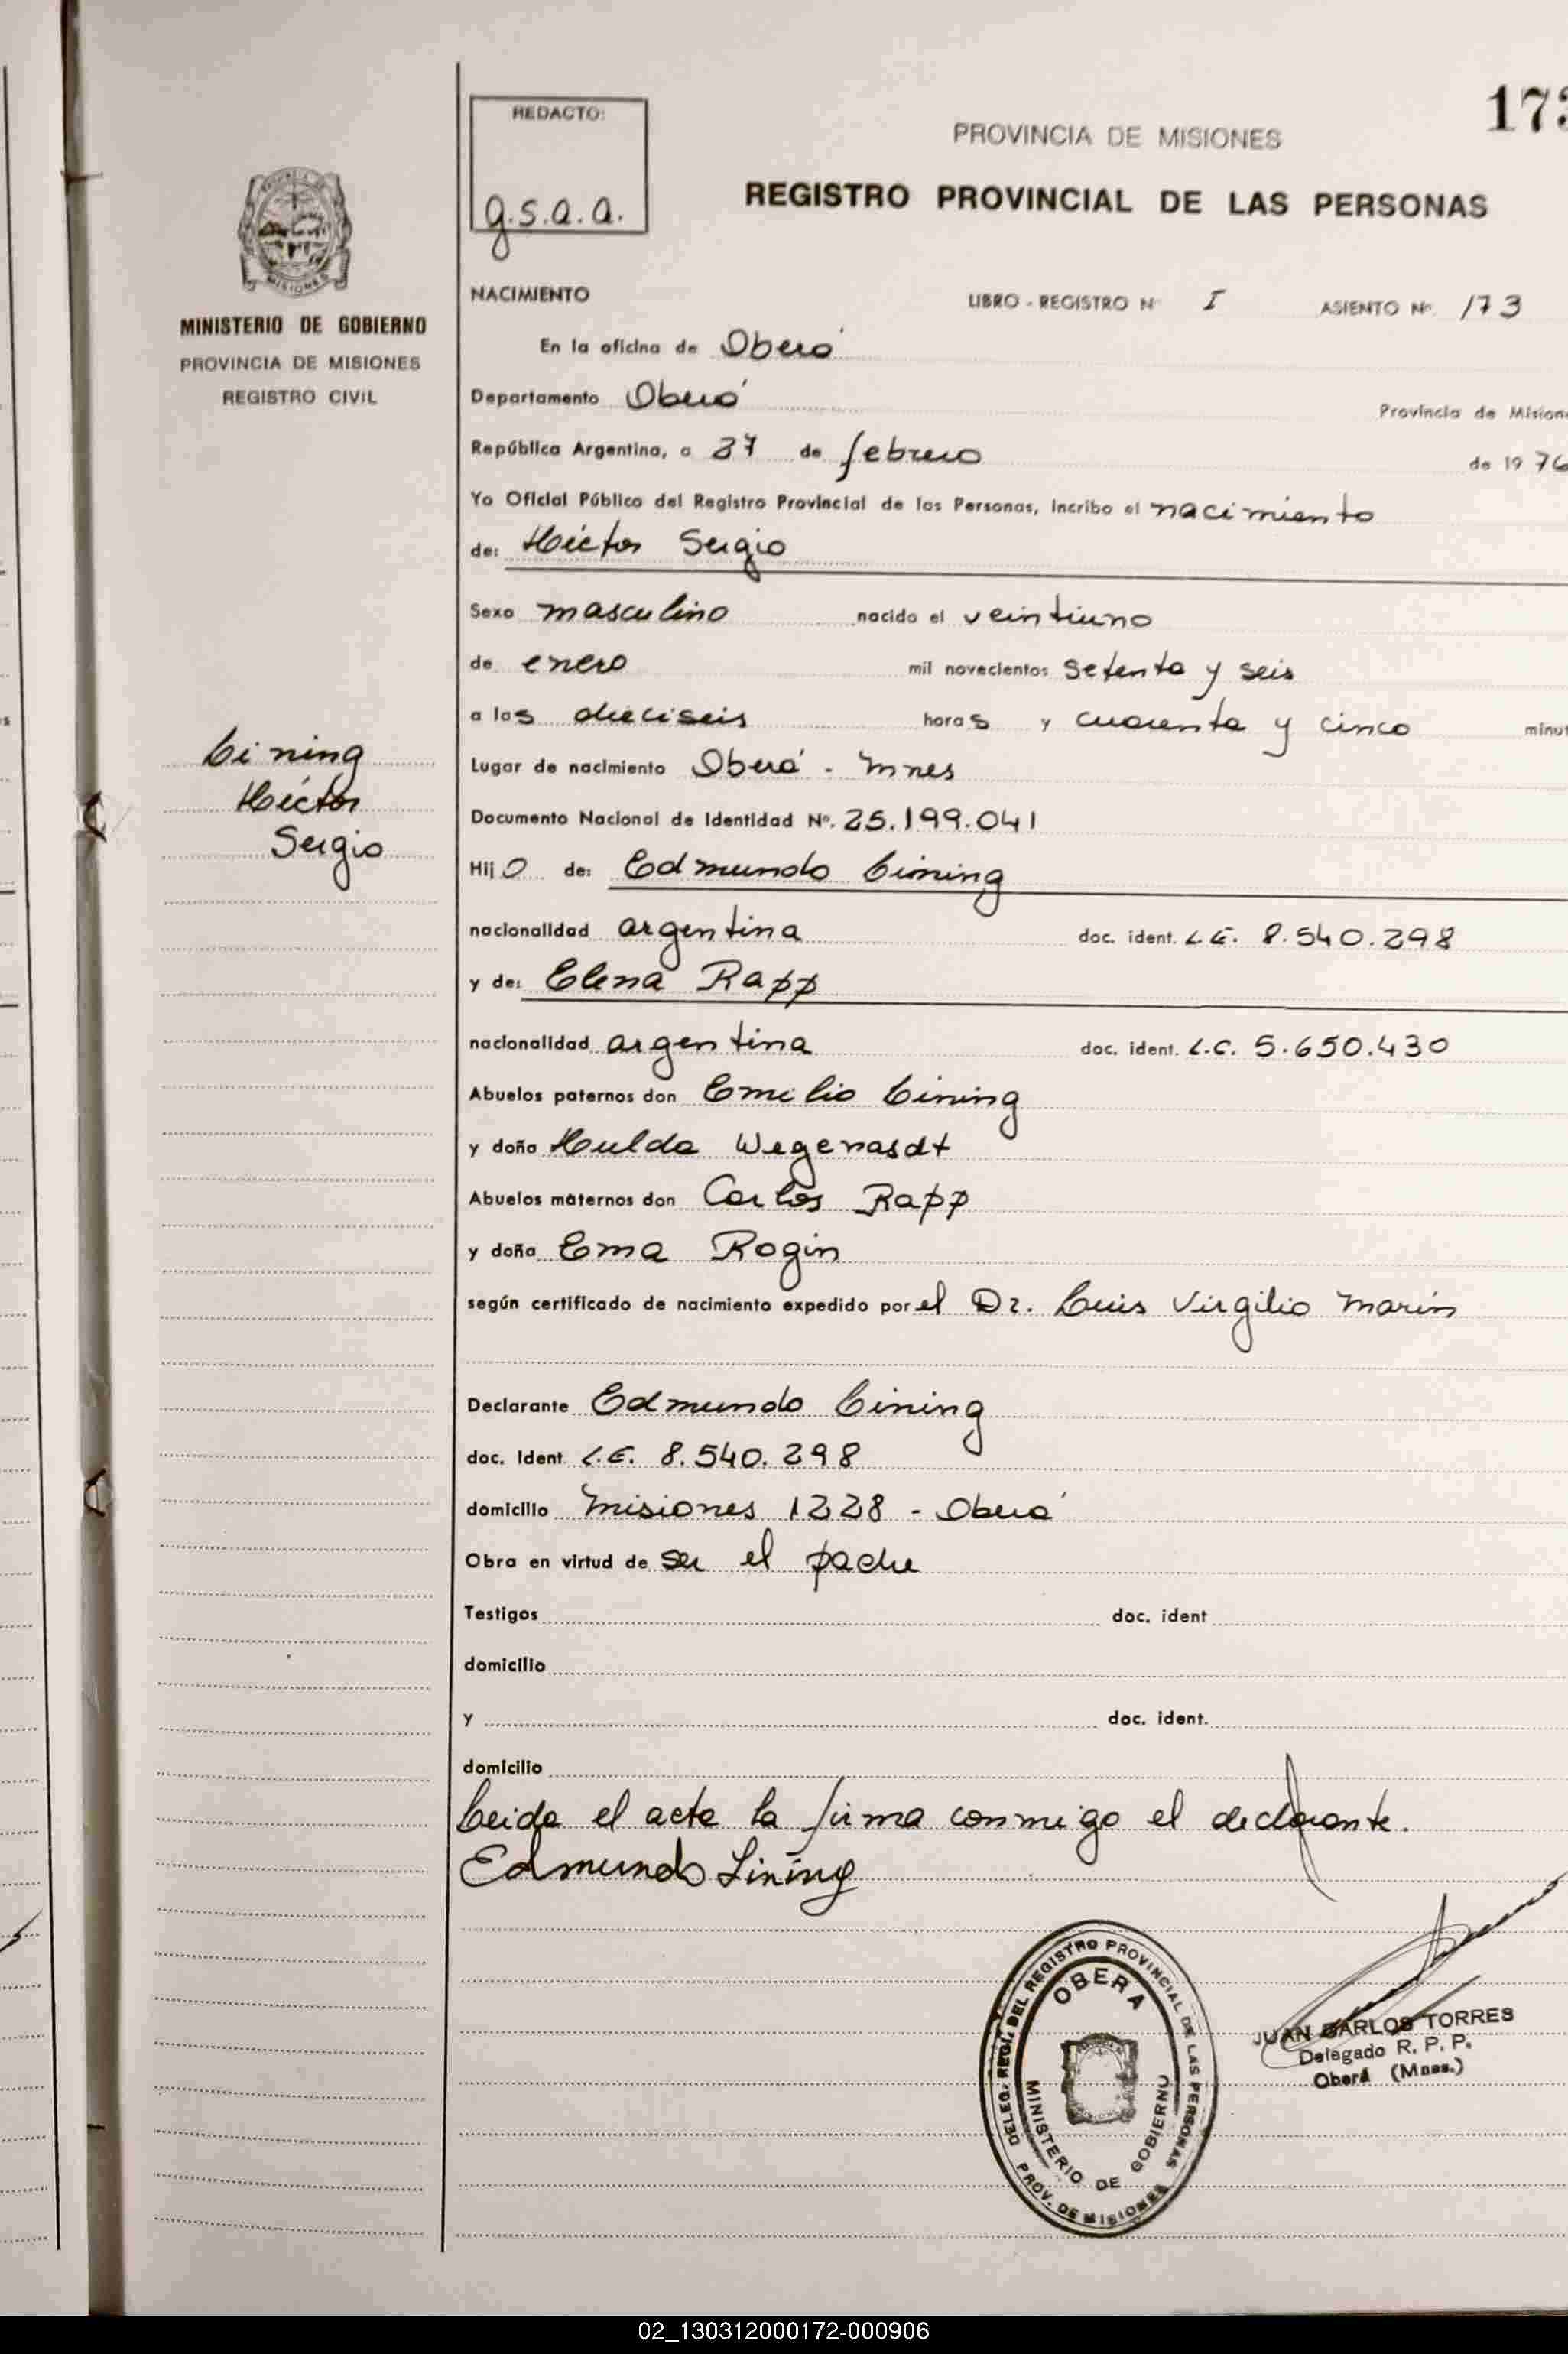 173
REDACTO:
g.s.a.a.
PROVINCIA DE MISIONES
REGISTRO PROVINCIAL DE LAS PERSONAS
MISIONES
MINISTERIO DE GOBIERNO
PROVINCIA DE MISIONES
REGISTRO CIVIL
NACIMIENTO LIBRO - REGISTRO Nº I ASIENTO Nº 173
En la oficina de Oberá
Departamento Oberá Provincia de Mision
República Argentina, a 27 de febrero de 1976
Yo Oficial Público del Registro Provincial de las Personas, incribo el nacimiento
de: Héctor Sergio
Sexo masculino nacido el veintiuno
de enero mil novecientos setenta y seis
a las dieciseis horas y cuarenta y cinco minut
Lining
Héctor
Sergio
Lugar de nacimiento Oberá - Mnes
Documento Nacional de Identidad Nº. 25.199.041
Hijo de: Edmundo Lining
nacionalidad argentina doc. ident. L.E. 8.540.298
y de: Elena Rapp
nacionalidad argentina doc. ident. L.C. 5.650.430
Abuelos paternos don Emilio Lining
y doña Hulda Wegerasdt
Abuelos maternos don Carlos Rapp
y doña Ema Rogin
según certificado de nacimiento expedido por el Dr. Luis Virgilio Marin
Declarante Edmundo Lining
doc. Ident. L.E. 8.540.298
domicilio Misiones 1228 - Oberá
Obra en virtud de ser el padre
Testigos doc. ident
domicilio
y doc. ident.
domicilio
Leida el acta la firma conmigo el declarante.
Edmundo Lining
DELEG. REGI. DEL REGISTRO PROVINCIAL DE LAS PERSONAS
OBERA
MINISTERIO DE GOBIERNO
PROV. DE MISIONES
JUAN CARLOS TORRES
Delegado R. P. P.
Oberá (Mnes.)
02_130312000172-000906